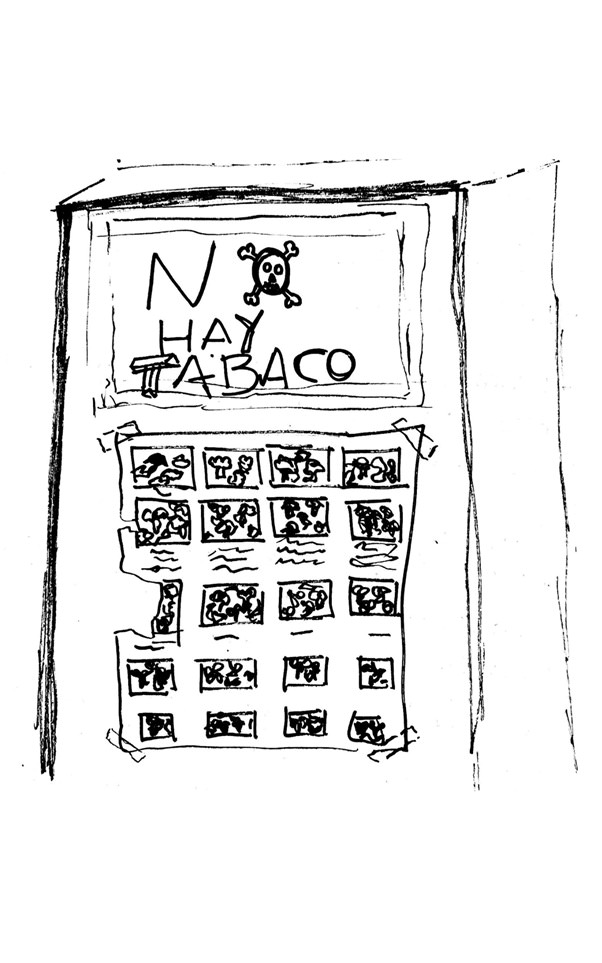 NO
HAY
TABACO